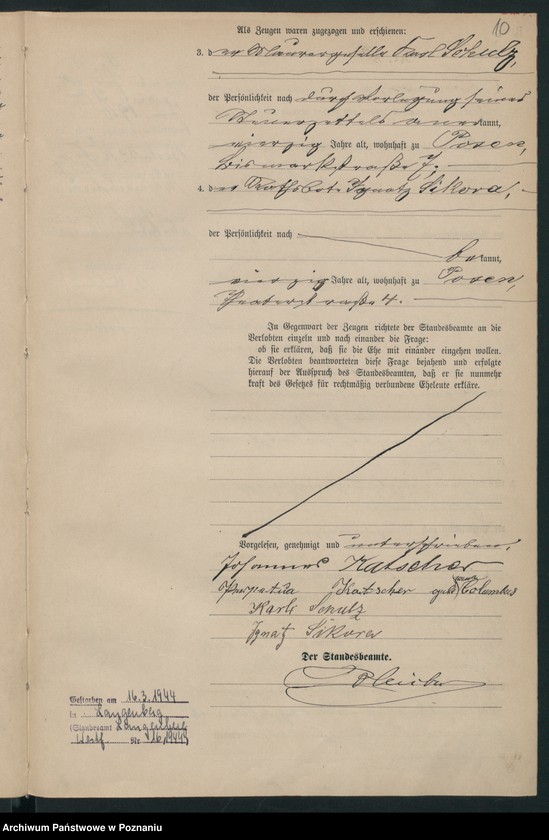 10
Als Zeugen waren zugezogen und erschienen:
3. der Maurergeselle Karl Schulz,
der Persönlichkeit nach durch Vorlegung seines
Steuerzettels anerkannt,
vierzig Jahre alt, wohnhaft zu Posen,
Bismarckstraße 7.
4. der Rathsbote Ignatz Sikora,
der Persönlichkeit nach
bekannt,
vierzig Jahre alt, wohnhaft zu Posen,
Theaterstraße 4.
In Gegenwart der Zeugen richtete der Standesbeamte an die
Verlobten einzeln und nach einander die Frage:
ob sie erklären, daß sie die Ehe mit einander eingehen wollen.
Die Verlobten beantworteten diese Frage bejahend und erfolgte
hierauf der Ausspruch des Standesbeamten, daß er sie nunmehr
kraft des Gesetzes für rechtmäßig verbundene Eheleute erkläre.
Vorgelesen, genehmigt und unterschrieben.
Johannes Katscher
Perpetua Katscher geb.
Karl Schulz
Ignatz Sikora
Der Standesbeamte.
Gestorben am 16.3.1944
in Langenberg
(Standesamt Langenberg
Westf. Nr. 16/1944)
Archiwum Państwowe w Poznaniu